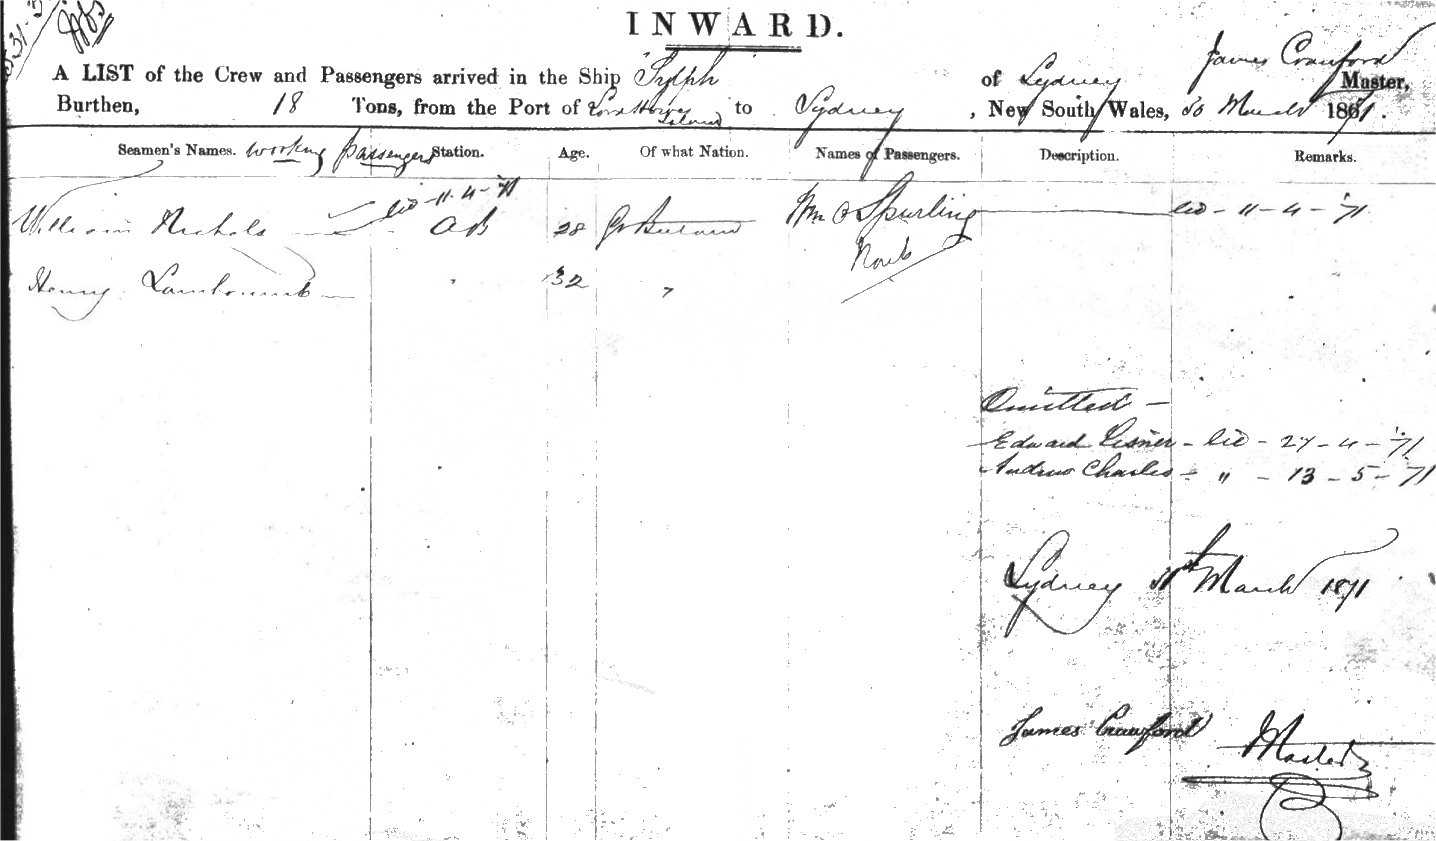 INWARD.
A LIST of the Crew and Passengers arrived in the Ship Sylph of Sydney James Crawford Master,
Burthen, 18 Tons, from the Port of Lord Howe Island to Sydney, New South Wales, 30 March 1871.
Seamen's Names. working passengers Station. Age. Of what Nation. Names of Passengers. Description. Remarks.
11-4-'71
William Nichols AB 28 Gt Britain Wm Spurling 11-4-'71
Henry 32 "
Omitted -
Edward - 27-4-'71
Andrew Charles - " - 13-5-'71
Sydney March 1871
James Crawford Master